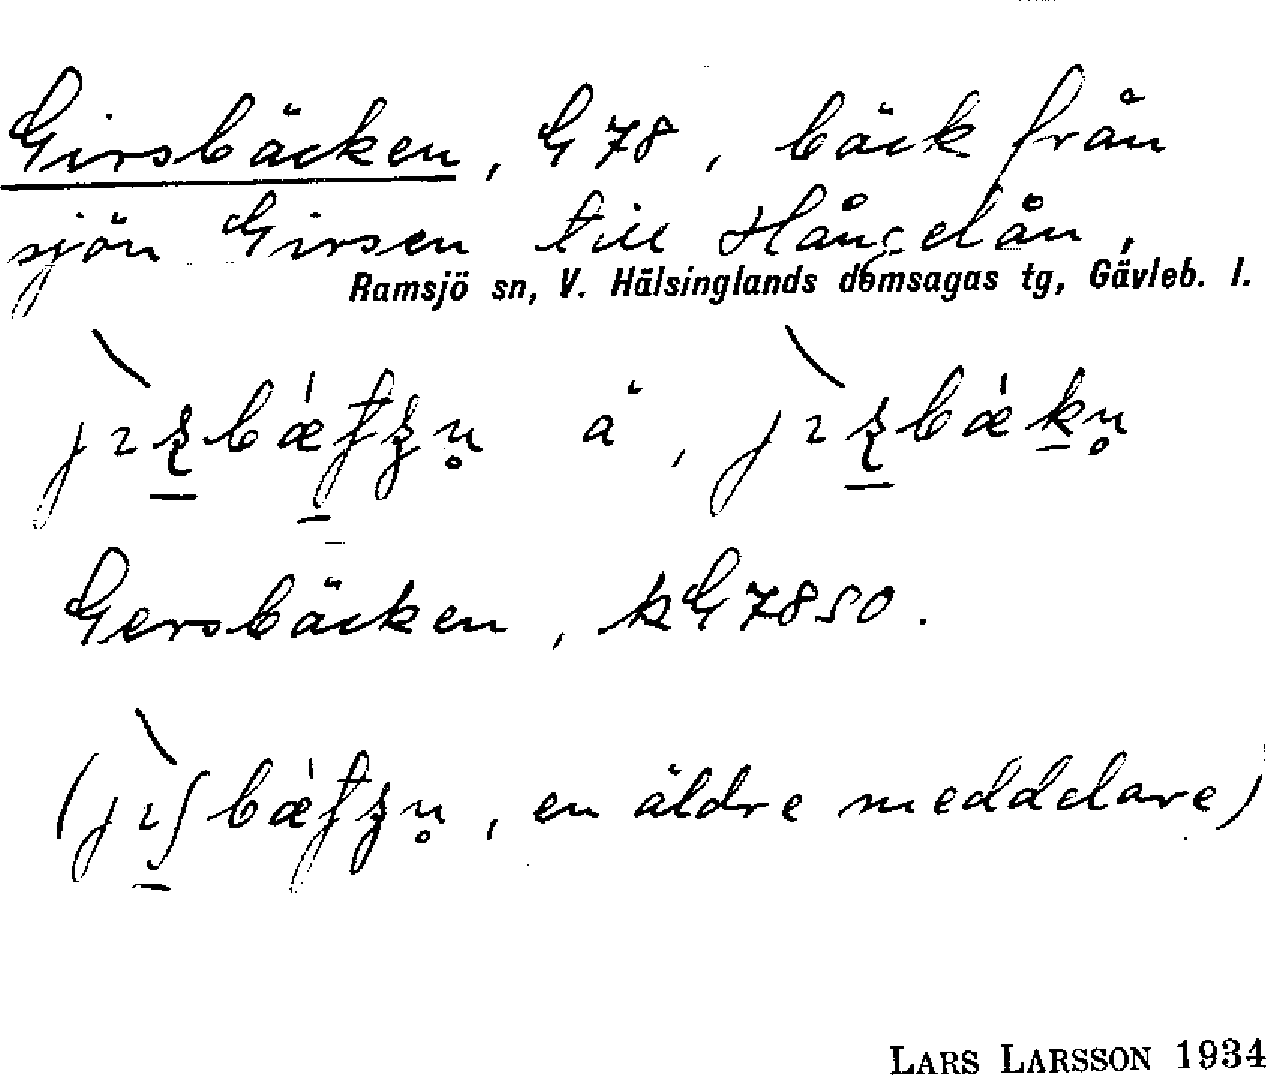 Girsbäcken, G 78, bäck från
sjön Girsen till Hångelån,
Ramsjö sn, V. Hälsinglands domsagas tg, Gävleb. l.
å,
Gersbäcken, kG7850.
en äldre meddelare)
LARS LARSSON 1934